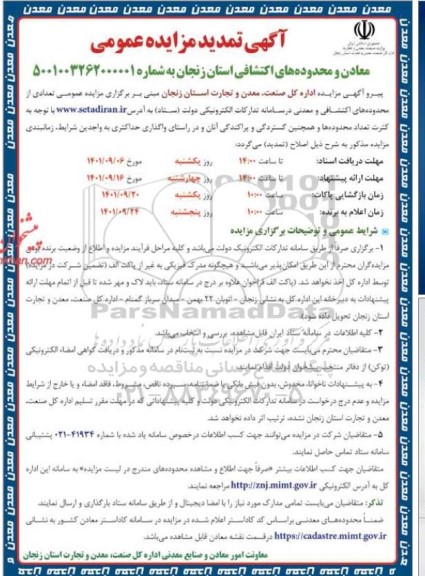 آگهی تمدید مزایده عمومی
معادن و محدوده‌های اکتشافی استان زنجان به شماره ۵۰۰۱۰۰۳۲۶۲۰۰۰۰۰۱
پیرو آگهی مزایده اداره کل صنعت، معدن و تجارت استان زنجان مبنی بر برگزاری مزایده عمومی تعدادی از
محدوده‌های اکتشافی و معدنی درسامانه تدارکات الکترونیکی دولت (ستاد) به آدرس www.setadiran.ir با توجه به
کثرت تعداد محدوده‌ها و همچنین گستردگی و پراکندگی آنان و در راستای واگذاری حداکثری به واجدین شرایط، زمانبندی
مزایده مذکور به شرح ذیل اصلاح (تمدید) می‌گردد:
مهلت دریافت اسناد: تا ساعت ۱۴:۰۰ روز یکشنبه مورخ ۱۴۰۱/۰۹/۰۶
مهلت ارائه پیشنهاد: تا ساعت ۱۴:۰۰ روز چهارشنبه مورخ ۱۴۰۱/۰۹/۱۶
زمان بازگشایی پاکات: ساعت ۱۰:۰۰ روز یکشنبه ۱۴۰۱/۰۹/۲۰
زمان اعلام به برنده: ساعت ۱۰:۰۰ روز پنجشنبه ۱۴۰۱/۰۹/۲۴
شرایط عمومی و توضیحات برگزاری مزایده
۱- برگزاری صرفا از طریق سامانه تدارکات الکترونیک دولت می‌باشد و کلیه مراحل فرآیند مزایده و اطلاع از وضعیت برنده بودن
مزایده‌گران محترم از این طریق امکان‌پذیر می‌باشد و هیچگونه مدرک فیزیکی به غیر از پاکت الف (تضمین شرکت در مزایده)
توسط اداره کل اخذ نخواهد شد. (پاکت الف فراخوان علاوه بر درج در سامانه ستاد، باید لاک و مهر شده تا قبل از اتمام مهلت ارائه
پیشنهادات به دبیرخانه این اداره کل به نشانی زنجان - اتوبان ۲۲ بهمن - میدان سرباز گمنام - اداره کل صنعت، معدن و تجارت
استان زنجان تحویل داده شود.)
۲- کلیه اطلاعات در سامانه ستاد ایران قابل مشاهده، بررسی و انتخاب می‌باشد.
۳- متقاضیان محترم می‌بایست جهت شرکت در مزایده نسبت به ثبت‌نام در سامانه مذکور و دریافت گواهی امضاء الکترونیکی
(توکن) از دفاتر منتخب پیشخوان دولت اقدام نمایند.
۴- به پیشنهادات ناخوانا، مخدوش، بدون فیش بانکی یا ضمانتنامه، سپرده ناقص، مشروط، فاقد امضاء و یا خارج از شرایط
مزایده و عدم درج درخواست در سامانه تدارکات الکترونیکی دولت و کلیه پیشنهاداتی که در مهلت مقرر تسلیم اداره کل صنعت،
معدن و تجارت استان زنجان نشده، ترتیب اثر داده نخواهد شد.
۵- متقاضیان شرکت در مزایده می‌توانند جهت کسب اطلاعات درخصوص سامانه یاد شده با شماره ۴۱۹۳۴-۰۲۱ پشتیبانی
سامانه ستاد تماس حاصل نمایند.
متقاضیان جهت کسب اطلاعات بیشتر «صرفاً جهت اطلاع و مشاهده محدوده‌های مندرج در لیست مزایده» به سامانه این اداره
کل به آدرس الکترونیکی http://znj.mimt.gov.ir مراجعه نمایند.
تذکر: متقاضیان می‌بایست تمامی مدارک مورد نیاز را با امضا دیجیتال و از طریق سامانه ستاد بارگذاری و ارسال نمایند.
ضمناً محدوده‌های معدنی براساس کد کاداستر اعلام شده در مزایده در سامانه کاداستر معادن کشور به نشانی
https://cadastre.mimt.gov.ir درقسمت نقشه معادن قابل مشاهده می‌باشد.
معاونت امور معادن و صنایع معدنی اداره کل صنعت، معدن و تجارت استان زنجان